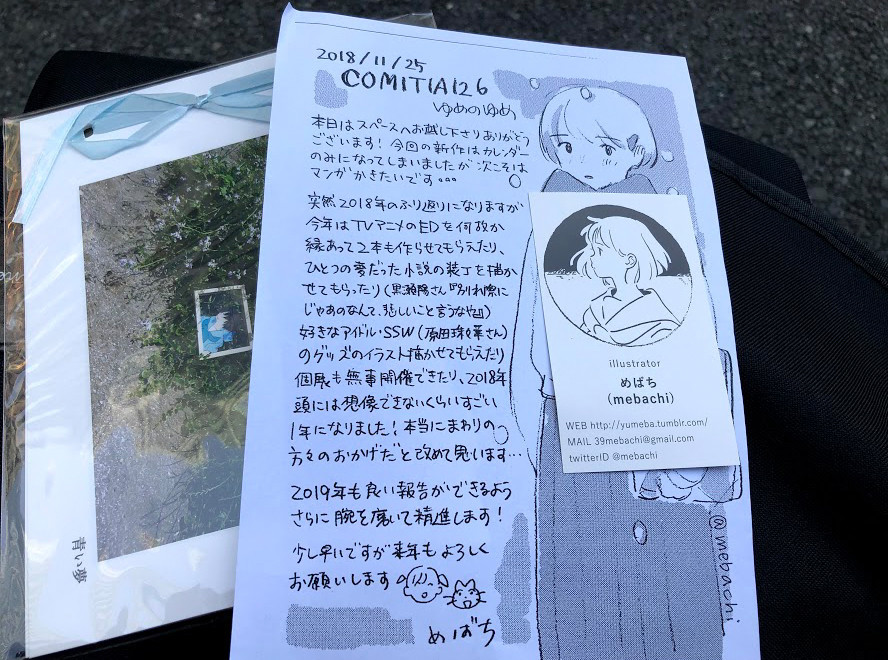 2018/11/25
COMITIA126
ゆめのゆめ
本日はスペースへお越し下さりありがとう
ございます！今回の新作はカレンダー
のみになってしまいましたが次こそは
マンガかきたいです。。。
突然2018年のふり返りになりますが
今年はTVアニメのEDを何故か
縁あって2本も作らせてもらえたり、
ひとつの夢だった小説の装丁を描か
せてもらったり(黒瀬陽さん『別れ際に
じゃあのなんて、悲しいこと言うなや』)
好きなアイドル・SSW(原田珠々華さん)
のグッズのイラスト描かせてもらえたり
個展も無事開催できたり、2018年
頭には想像できないくらいすごい
1年になりました！本当にまわりの
方々のおかげだと改めて思います…
2019年も良い報告ができるよう
さらに腕を磨いて精進します！
少し早いですが来年もよろしく
お願いします
めばち
@mebachi
illustrator
めばち
(mebachi)
WEB http://yumeba.tumblr.com/
MAIL 39mebachi@gmail.com
twitterID @mebachi
青い夢